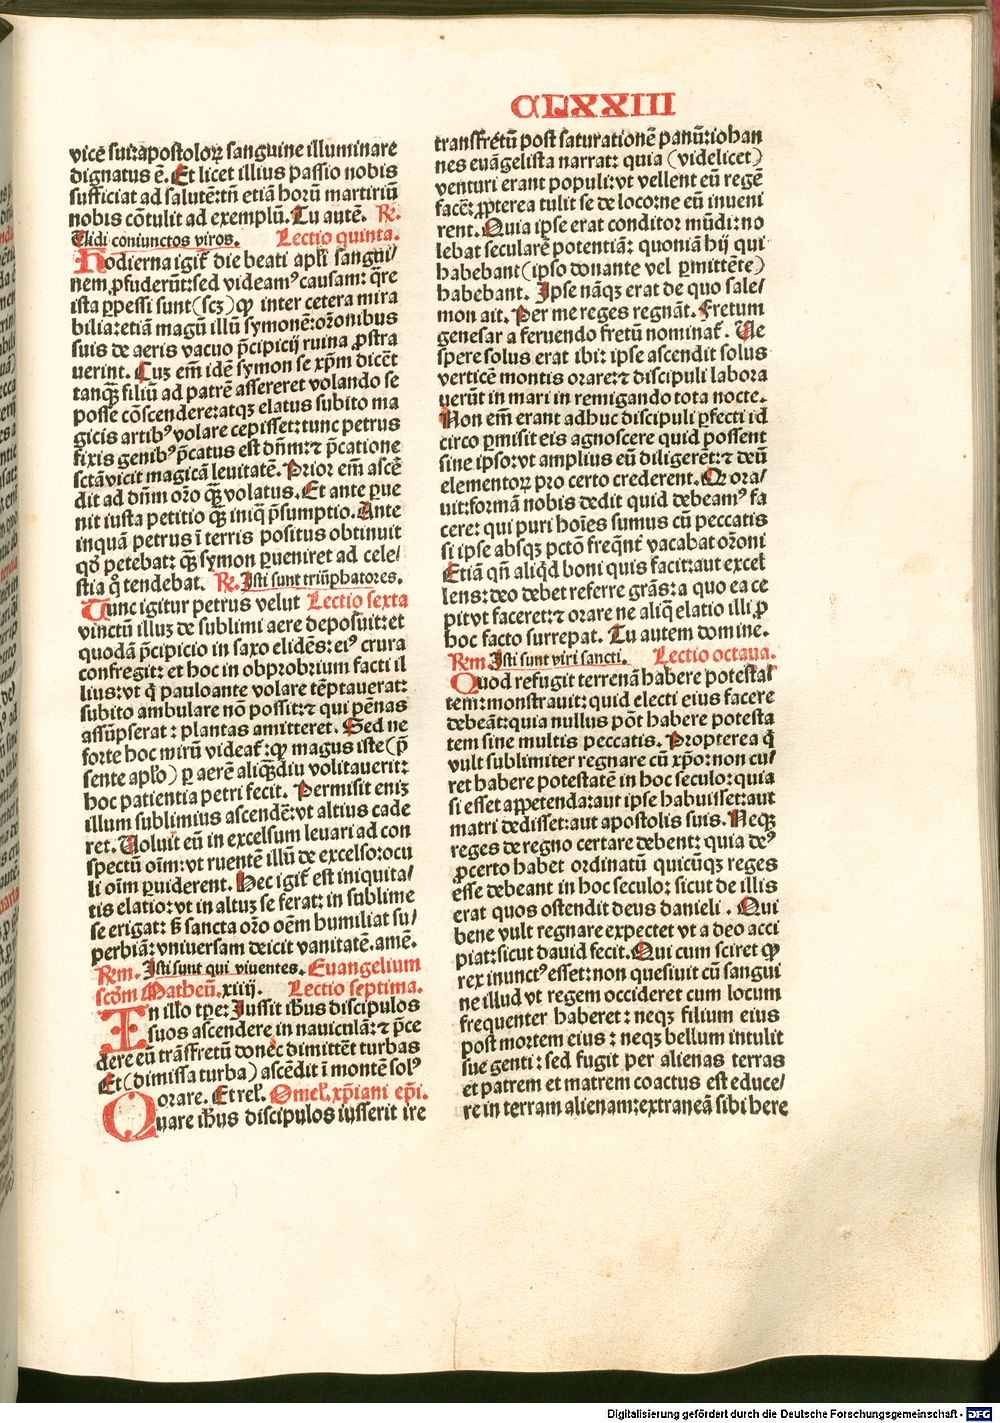 CLXXIII
vicē sui: ꝛ apostoloꝝ sanguine illuminare
dignatus ē. Et licet illius passio nobis
sufficiat ad salutē: tñ etiā horū martiriū
nobis cōtulit ad exemplū. Tu autē. ℟.
Uidi coniunctos viros. Lectio quinta.
Hodierna igit᷑ die beati apl̄i sangui/
nem ꝓfuderūt: sed videamꝰ causam: q̄re
ista ꝑpessi sunt (scꝫ) ꝙ inter cetera mira
bilia: etiā magū illū symonē: orōnibus
suis de aeris vacuo p̄cipicij ruina ꝓstra
uerint. Cuꝫ em̄ idē symon se xp̄m dicēt
tanqꝫ̄ filiū ad patrē assereret volando se
posse cōscendere: atqꝫ elatus subito ma
gicis artibꝰ volare cepisset: tunc petrus
fixis genibꝰ p̄catus est dn̄m: ⁊ p̄catione
sctā vicit magicā leuitatē. Prior em̄ ascē
dit ad dn̄m orō qꝫ̄ volatus. Et ante ꝑue
nit iusta petitio qꝫ̄ iniq̄ p̄sumptio. Ante
inquā petrus ī terris positus obtinuit
qđ petebat: qꝫ̄ symon ꝑueniret ad cele/
stia q̊ tendebat. ℟. Isti sunt triūphatores.
Tunc igitur petrus velut Lectio sexta
vinctū illuꝫ de sublimi aere deposuit: et
quodā p̄cipicio in saxo elidēs: eiꝰ crura
confregit: et hoc in obprobrium facti il
lius: vt q̄ pauloante volare tēptauerat:
subito ambulare nō possit: ⁊ qui pēnas
assūpserat: plantas amitteret. Sed ne
forte hoc mirū videat᷑: ꝙ magus iste (p̄
sente apl̄o) ꝑ aerē aliqꝫ̄diu volitauerit:
hoc patientia petri fecit. Permisit enīꝫ
illum sublimius ascendē: vt altius cade
ret. Uoluit eū in excelsum leuari ad con
spectū oīm: vt ruentē illū de excelso: ocu
li oīm ꝑuiderent. Hec igit᷑ est iniquita/
tis elatio: vt in altuꝫ se ferat: in sublime
se erigat: ß sancta orō oēm humiliat su/
perbiā: vniuersam deicit vanitatē. amē.
℟m. Isti sunt qui viuentes. Euangelium
scd̄m Matheū. xiiij. Lectio septima.
In illo tp̄e: Jussit ih̄us discipulos
suos ascendere in nauiculā: ⁊ p̄ce
dere eū trāsfretū donec dimittēt turbas
Et (dimissa turba) ascēdit ī montē solꝰ
orare. Et rel̄. Omel̄. xp̄iani ep̄i.
Quare ih̄us discipulos iusserit ire
transfretū post saturationē panū: iohan
nes euāgelista narrat: quia (videlicet)
venturi erant populi: vt vellent eū regē
facē: ꝓpterea tulit se de loco: ne eū inueni
rent. Quia ipse erat conditor mūdi: no
lebat secularē potentiā: quoniā hij qui
habebant (ipso donante vel ꝑmittēte)
habebant. Ipse nāqꝫ erat de quo sale/
mon ait. Per me reges regnāt. Fretum
genesar a feruendo fretū nominat᷑. Ue
spere solus erat ibi: ipse ascendit solus
verticē montis orare: ⁊ discipuli labora
uerūt in mari in remigando tota nocte.
Non em̄ erant adhuc discipuli ꝑfecti id
circo ꝑmisit eis agnoscere quid possent
sine ipso: vt amplius eū diligerēt: ⁊ deū
elementoꝝ pro certo crederent. Qr̄ ora/
uit: formā nobis dedit quid debeamꝰ fa
cere: qui puri hoīes sumus cū peccatis
si ipse absqꝫ pctō freq̄nt᷑ vacabat orōni
Etiā qn̄ aliq̄d boni quis facit: aut excel̄
lens: deo debet referre grās: a quo ea ce
pit vt faceret: ⁊ orare ne aliq̄ elatio illi ꝓ
hoc facto surrepat. Tu autem domine.
℟m. Isti sunt viri sancti. Lectio octaua.
Quod refugit terrenā habere potesta/
tem: monstrauit: quid electi eius facere
debeāt: quia nullus pōt habere potesta
tem sine multis peccatis. Propterea q̄
vult sublimiter regnare cū xp̄o: non cu/
ret habere potestatē in hoc seculo: quia
si esset appetenda: aut ipse habuisset: aut
matri dedisset: aut apostolis suis. Neqꝫ
reges de regno certare debent: quia deꝰ
ꝓcerto habet ordinatū quicūqꝫ reges
esse debeant in hoc seculo: sicut de illis
erat quos ostendit deus danieli. Qui
bene vult regnare expectet vt a deo acci
piat: sicut dauid fecit. Qui cum sciret ꝙ
rex inunctꝰ esset: non quesiuit cū sangui
ne illud vt regem occideret cum locum
frequenter haberet: neqꝫ filium eius
post mortem eius: neqꝫ bellum intulit
sue genti: sed fugit per alienas terras
et patrem et matrem coactus est educe/
re in terram alienam: extraneā sibi here
Digitalisierung gefördert durch die Deutsche Forschungsgemeinschaft - DFG